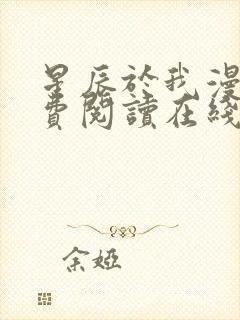 星辰於我漫
費閱讀在綫
余婭